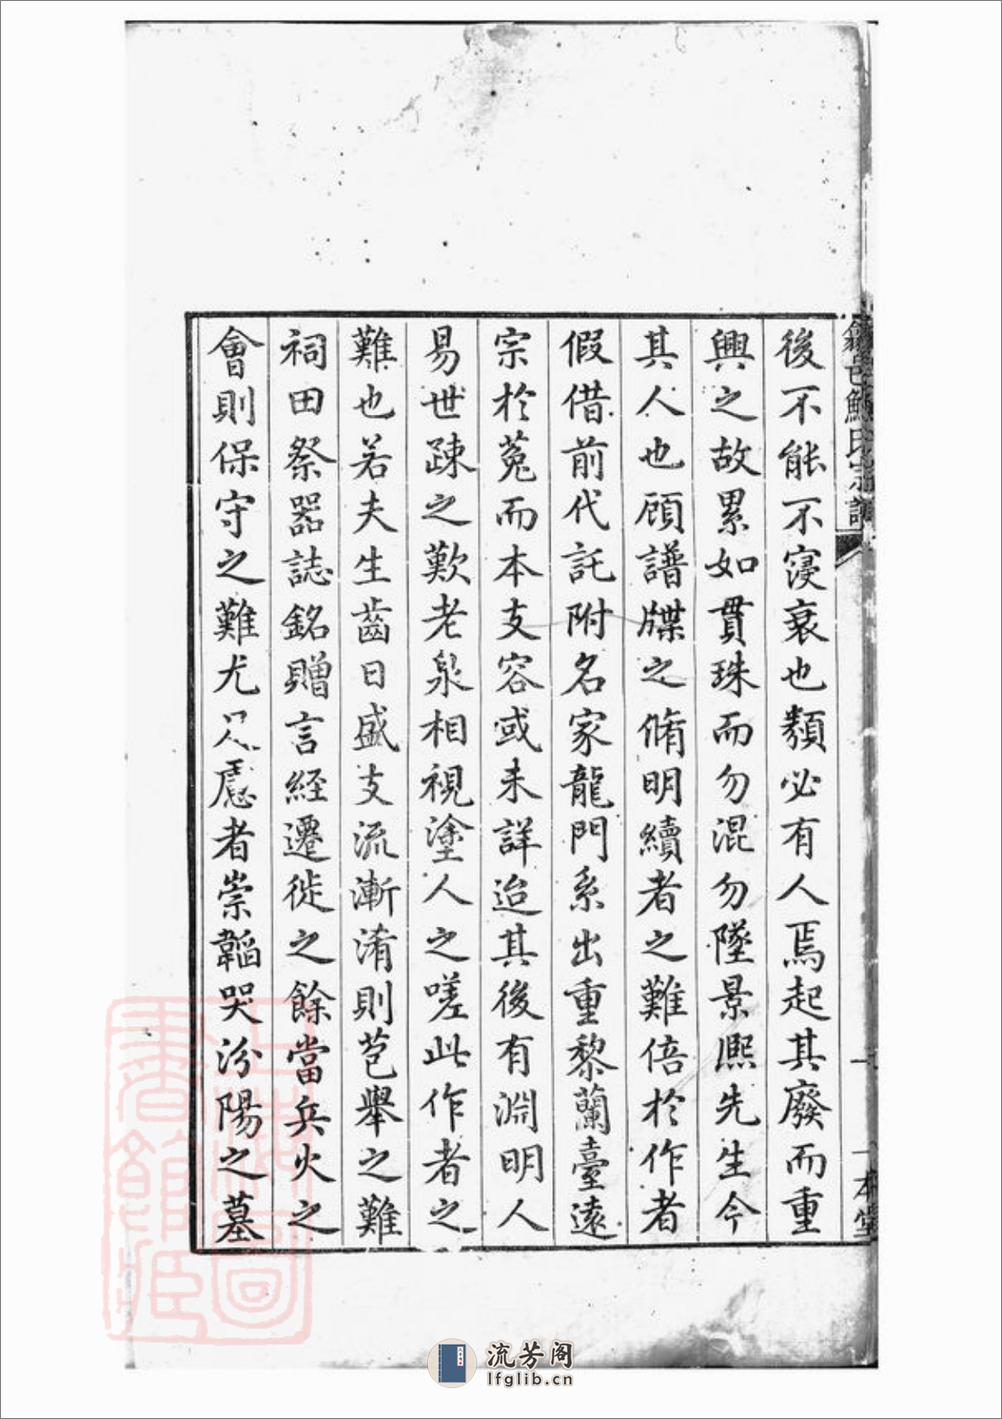 後不能不寖衰也纇必有人焉起其廢而重
興之故累如貫珠而勿混勿墜景熈先生今
其人也顧譜牒之脩明續者之難倍於作者
假借前代託附名家龍門系出重黎蘭臺遠
宗於菟而本支容或未詳迨其後有淵明人
易世踈之歎老泉相視塗人之嗟此作者之
難也若夫生齒日盛支流漸淆則苞舉之難
祠田祭器誌銘贈言経遷徙之餘當兵火之
會則保守之難尤足慮者崇韜哭汾陽之墓
鮑氏宗譜
一本堂
上海圖書館藏
流芳阁
lfglib.cn